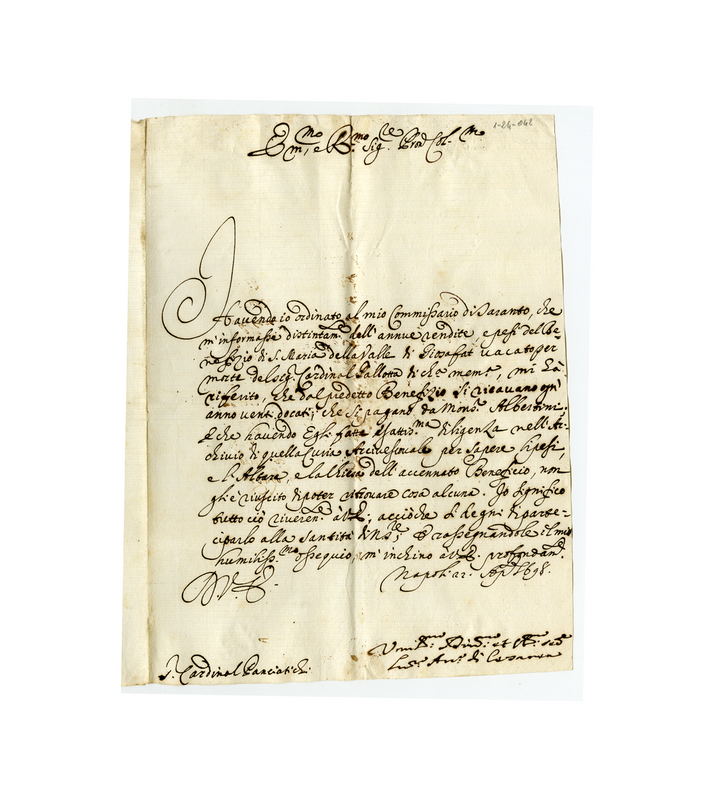 1-24-042
Em.mo e R.mo Sig.re Pron Col.mo
Havendo io ordinato al mio Commissario di Taranto, che
m'informasse distintam.te dell'annue rendite e pesi del Be-
nefizio di S. Maria della Valle di Giosaffat vacato per
morte del Sig. Cardinal Pallotta di ch. mem., mi hà
riferito, che dal predetto Benefizio si ricavano ogn'
anno venti docati; che si pagano da Mons.r Albertini;
E che havendo Egli fatte esattiss.me diligenza nell'Ar-
chivio di quella Curia Arcivescovale per sapere li pesi,
e l'Altare, e la Chiesa dell'accennato Beneficio, non
gli è riuscito di poter ritrovare cosa alcuna. Io significo
tutto ciò riveren.te à V.E.; acciòche si degni di parte-
ciparlo alla Santità di N. Sre; E rassegnandole il mio
humiliss.mo ossequio, m'inchino a V.E. profondam.te
D. V. E. Napoli 22. Aple 1698.
S. Cardinal Panciatichi